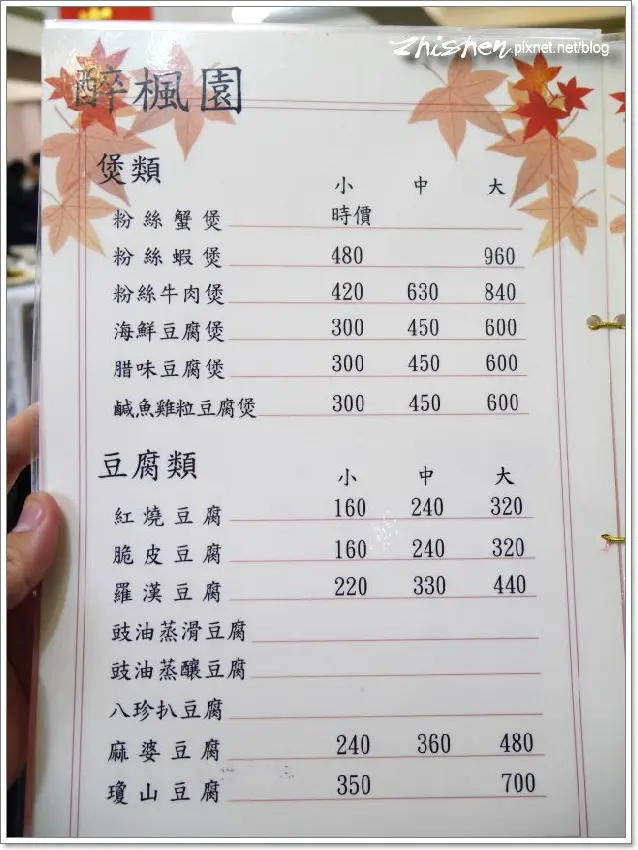 zhishen.pixnet.net/blog
醉楓園
煲類 小 中 大
粉絲蟹煲 時價
粉絲蝦煲 480 960
粉絲牛肉煲 420 630 840
海鮮豆腐煲 300 450 600
腊味豆腐煲 300 450 600
鹹魚雞粒豆腐煲 300 450 600
豆腐類 小 中 大
紅燒豆腐 160 240 320
脆皮豆腐 160 240 320
羅漢豆腐 220 330 440
豉油蒸滑豆腐
豉油蒸釀豆腐
八珍扒豆腐
麻婆豆腐 240 360 480
瓊山豆腐 350 700